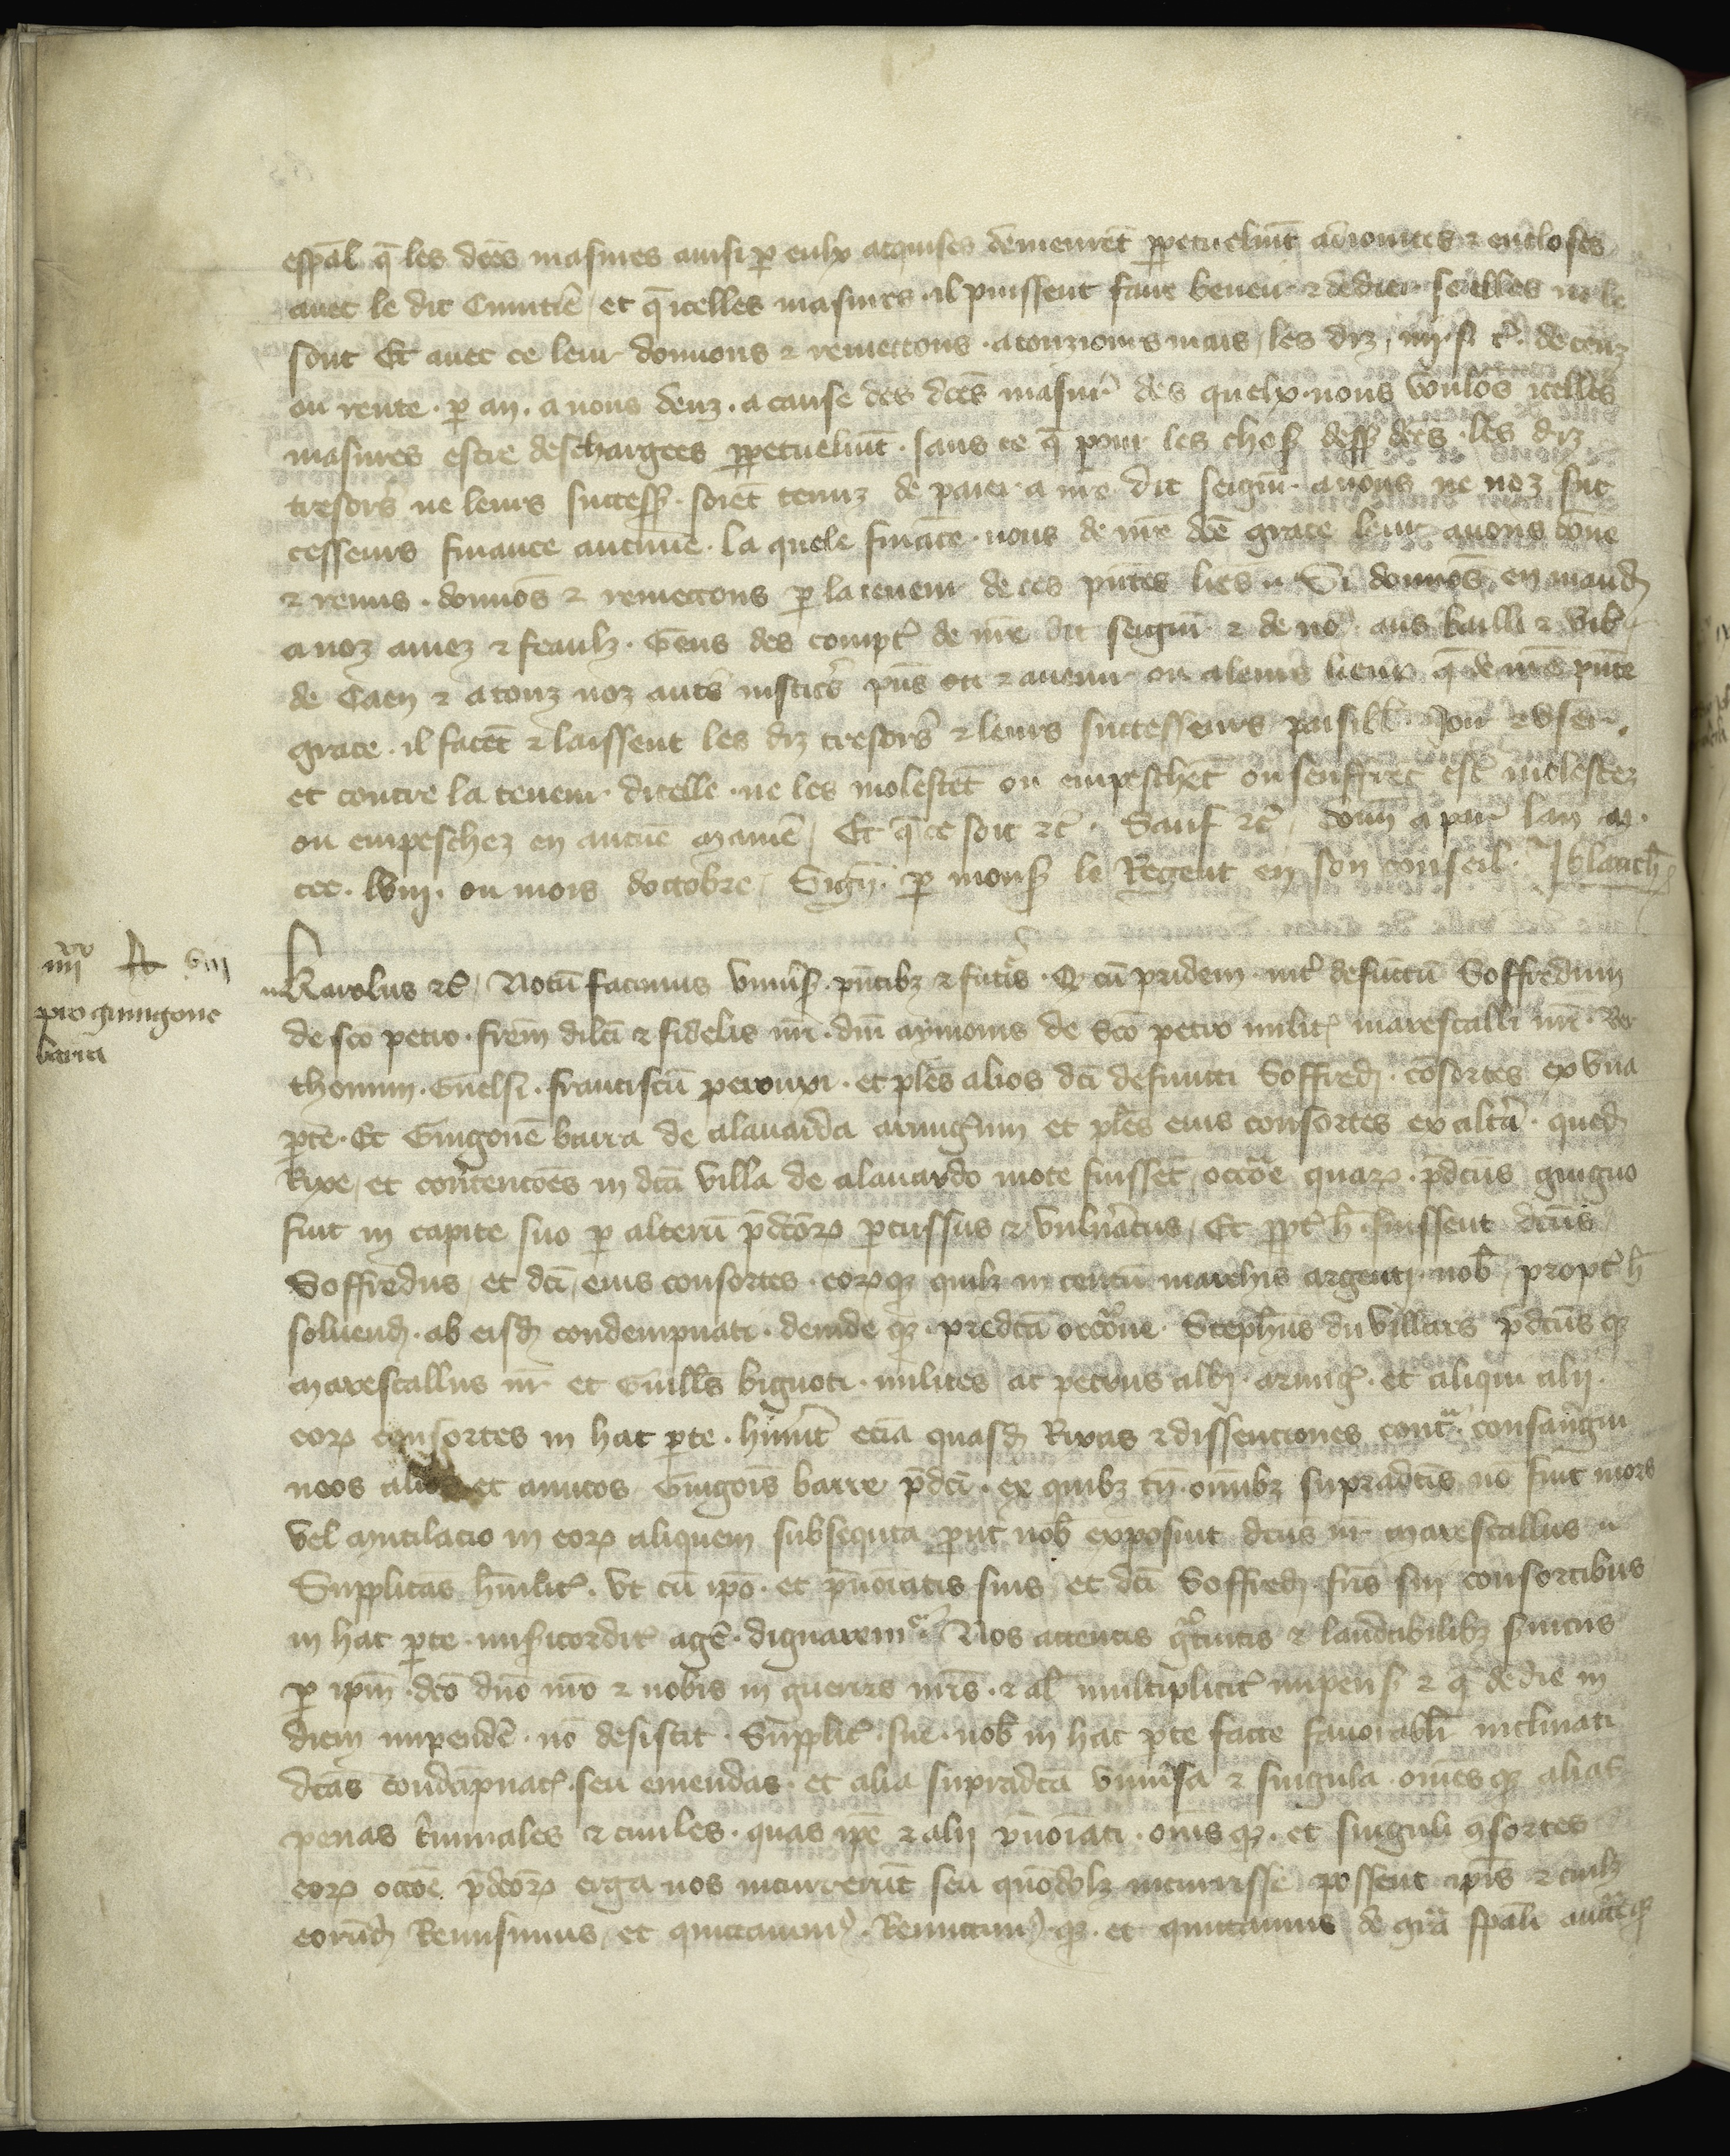 esp̄al q̄ les d̄ces masures ainsi p̱ eulx acquises demeurēt p̱petuelm̄t adiointes & encloses
avec le dit Cimitiē / et q̄ icelles masures · il puissent faire beneir & dedier se elles ne le
sont Et avec ce leur donnons & remettons · a touziours mais / les dz · iiij · s̄ t̄ · de cenz
ou rente · p̱ an · a nous deuz · a cause des d̄ces masur̄ des quelx · nous voulōs icelles
masures estre deschargees p̱petuelm̄t · sans ce q̄ pour les chos̄ dess̄ d̄ces · les dz
tresors̄ ne leurs success̄ · soiēt tenuz de paier a n̄re dit seign̄ · a nous ne noz suc
cesseurs finance aucune · la quele fināce · nous de n̄re d̄ce grace leur avons dōne
& remis · donnōs & remettons p̱ la teneur de ces p̄ntes l̄res · Si donnōs en mand̄
a noz amez & feaulx · Gens des compt̄ de n̄re dit seign̄ & de nō · aus bailli & vic̄
de Caen & a touz noz aut̄s iustic̄s p̄ns et & avenir ou a leurs lieux q̄ de n̄re p̄nte
grace · il facēt & laissent les dz tresors̄ & leurs successeurs paisibl̄ Joir & user ·
et contre la teneur dicelle · ne les molestēt ou empeschēt ou seuffrēt est̄ molestez
ou empeschez en aucūe maniē / Et q̄ ce soit &c̄ · Sauf &c̄ / donn̄ a par̄ lan M ·
ccc · lviij · ou mois doctobre / Sign̄ · p̱ mons̄ le Regent en son conseil · J blanch̄
iiij xx viij
pro guigone
barra
Karolus &c̄ / Notū facimus univ̄s̄ p̄ntib; & futur̄s · Q cū pridem int̄ defūctū Soffredum
de sc̄o petro · fr̄em dil̄ci & fidelis n̄ri · dn̄i aymonis de sc̄o petro milit̄ marescalli n̄ri · Ber
thonum · Guelsi · franciscū perouxi · et pl̄es alios d̄ci defuncti Soffred̄ · cōsortes ex una
p̱te · Et Guigonē barra de alavardo armiḡum et pl̄es eius consortes ex alt̄a · qued̄
Rixe / et contencōes in d̄ca villa de alavardo mote fuissēt / occōe quar̄ · p̄dc̄us guigo
fuit in capite suo p̱ alterū p̄dc̄or̄ p̱cussus & vuln̄atus / Et p̱pt̄ h̄ fuissent d̄cus /
Soffredus / et d̄ci / eius consortes · eor̄q; quil; in centū marchis argenti · nob̄ propt̄ h̄
solvend̄ · ab eisd̄ condempnati · deinde q; · predc̄a occ̄one · Steph̄us du villars p̄dc̄us q;
marescallus n̄r et Guill̄s bignoti · milites ac petrus alb̄i armiḡ · et aliqui alij ·
eor̄ consortes in hac p̱te · hūnt eciā quasd̄ Rixas & dissentiones cont̄ · consangui
neos et amicos Guigōis barre p̄dc̄i · ex quib; tn̄ omn̄ib; supradc̄is nō fuit mors
vel mutilacio in eor̄ aliquem subsequta p̱ut nob̄ exposuit d̄cus n̄r marescallus
Supplicās hūilit̄ · ut cū ip̄o · et p̄noīatis suis / et d̄ci Soffred̄ · fr̄is sui consortibus
in hac p̱te · mis̄icordit̄ agē · dignarem̄ · Nos attentis g̱tuitis & laudabilib; s̄viciis
p̱ ip̄m · d̄co dn̄o n̄ro & nobis in guerris n̄ris · & al̄ multiplicit̄ impens̄ & q̄ de die in
diem impendē · nō desistit · Supplic̄ · sue · nob̄ in hac p̱te facte favorabl̄r inclinati
d̄cas condāpnac̄ · seu emendas · et alia supradc̄a univ̄sa & singula · om̄es q; alias
penas c̄iminales & civiles · quas ip̄e & alij p̄noīati · om̄s q; · et singuli ꝯsortes
eor̄ occōe p̄dc̄or̄ erga nos incurrerūt seu quōdol; incurrisse possent ip̄is & cuil;
eorūd̄ Remisimus / et quittavim̄ · Remittim̄ · q; · et quittamus de gr̄a sp̄ali auct̄teq;